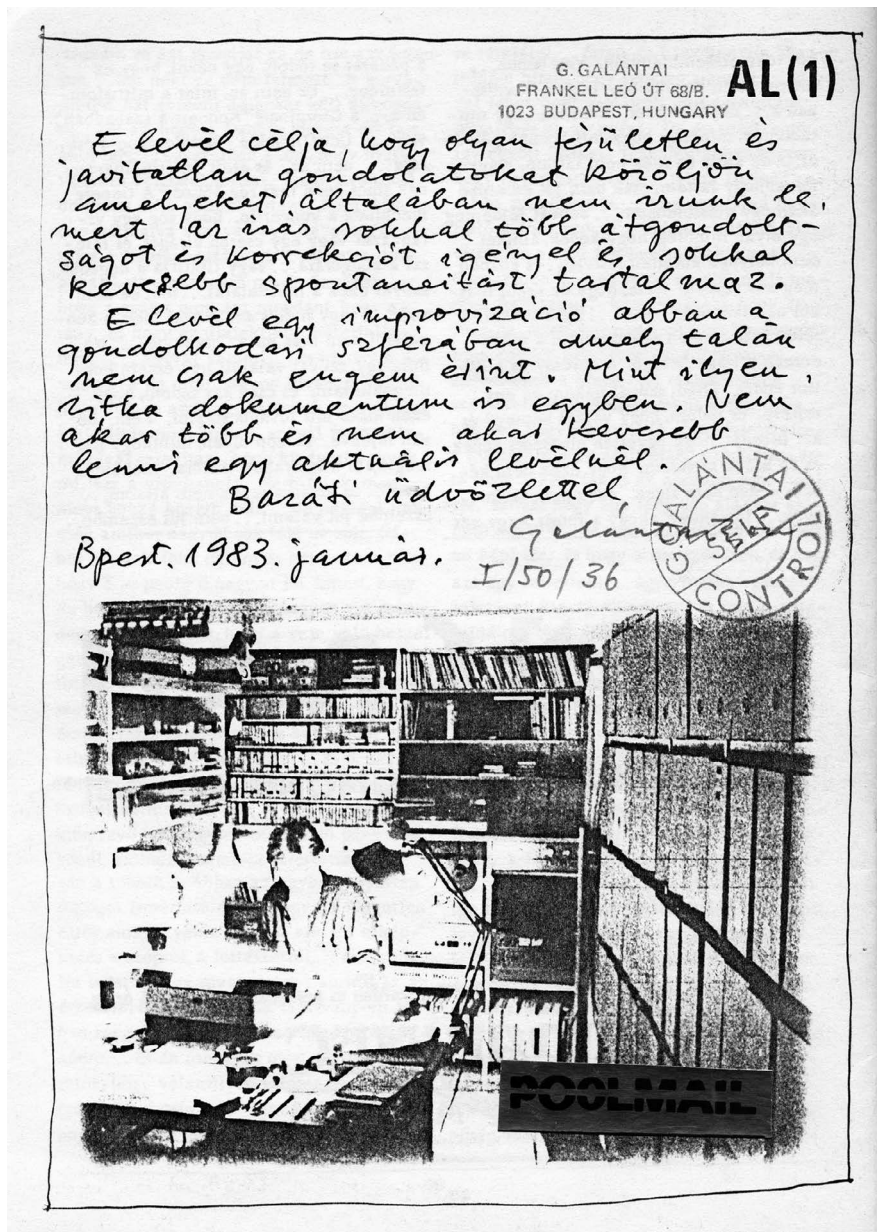 G. GALÁNTAI
FRANKEL LEÓ ÚT 68/B.
1023 BUDAPEST, HUNGARY
AL(1)
E levél célja, hogy olyan fésületlen és
javitatlan gondolatokat közöljön
amelyeket általában nem irunk le,
mert az irás sokkal több átgondolt-
ságot és korrekciót igényel és sokkal
kevesebb spontaneitást tartalmaz.
E levél egy improvizáció abban a
gondolkodási szférában amely talán
nem csak engem érint. Mint ilyen,
ritka dokumentum is egyben. Nem
akar több és nem akar kevesebb
lenni egy aktuális levélnél.
Baráti üdvözlettel
Galántai
Bpest. 1983. január.
I/50/36
G. GALÁNTAI
CONTROL
POOLMAIL